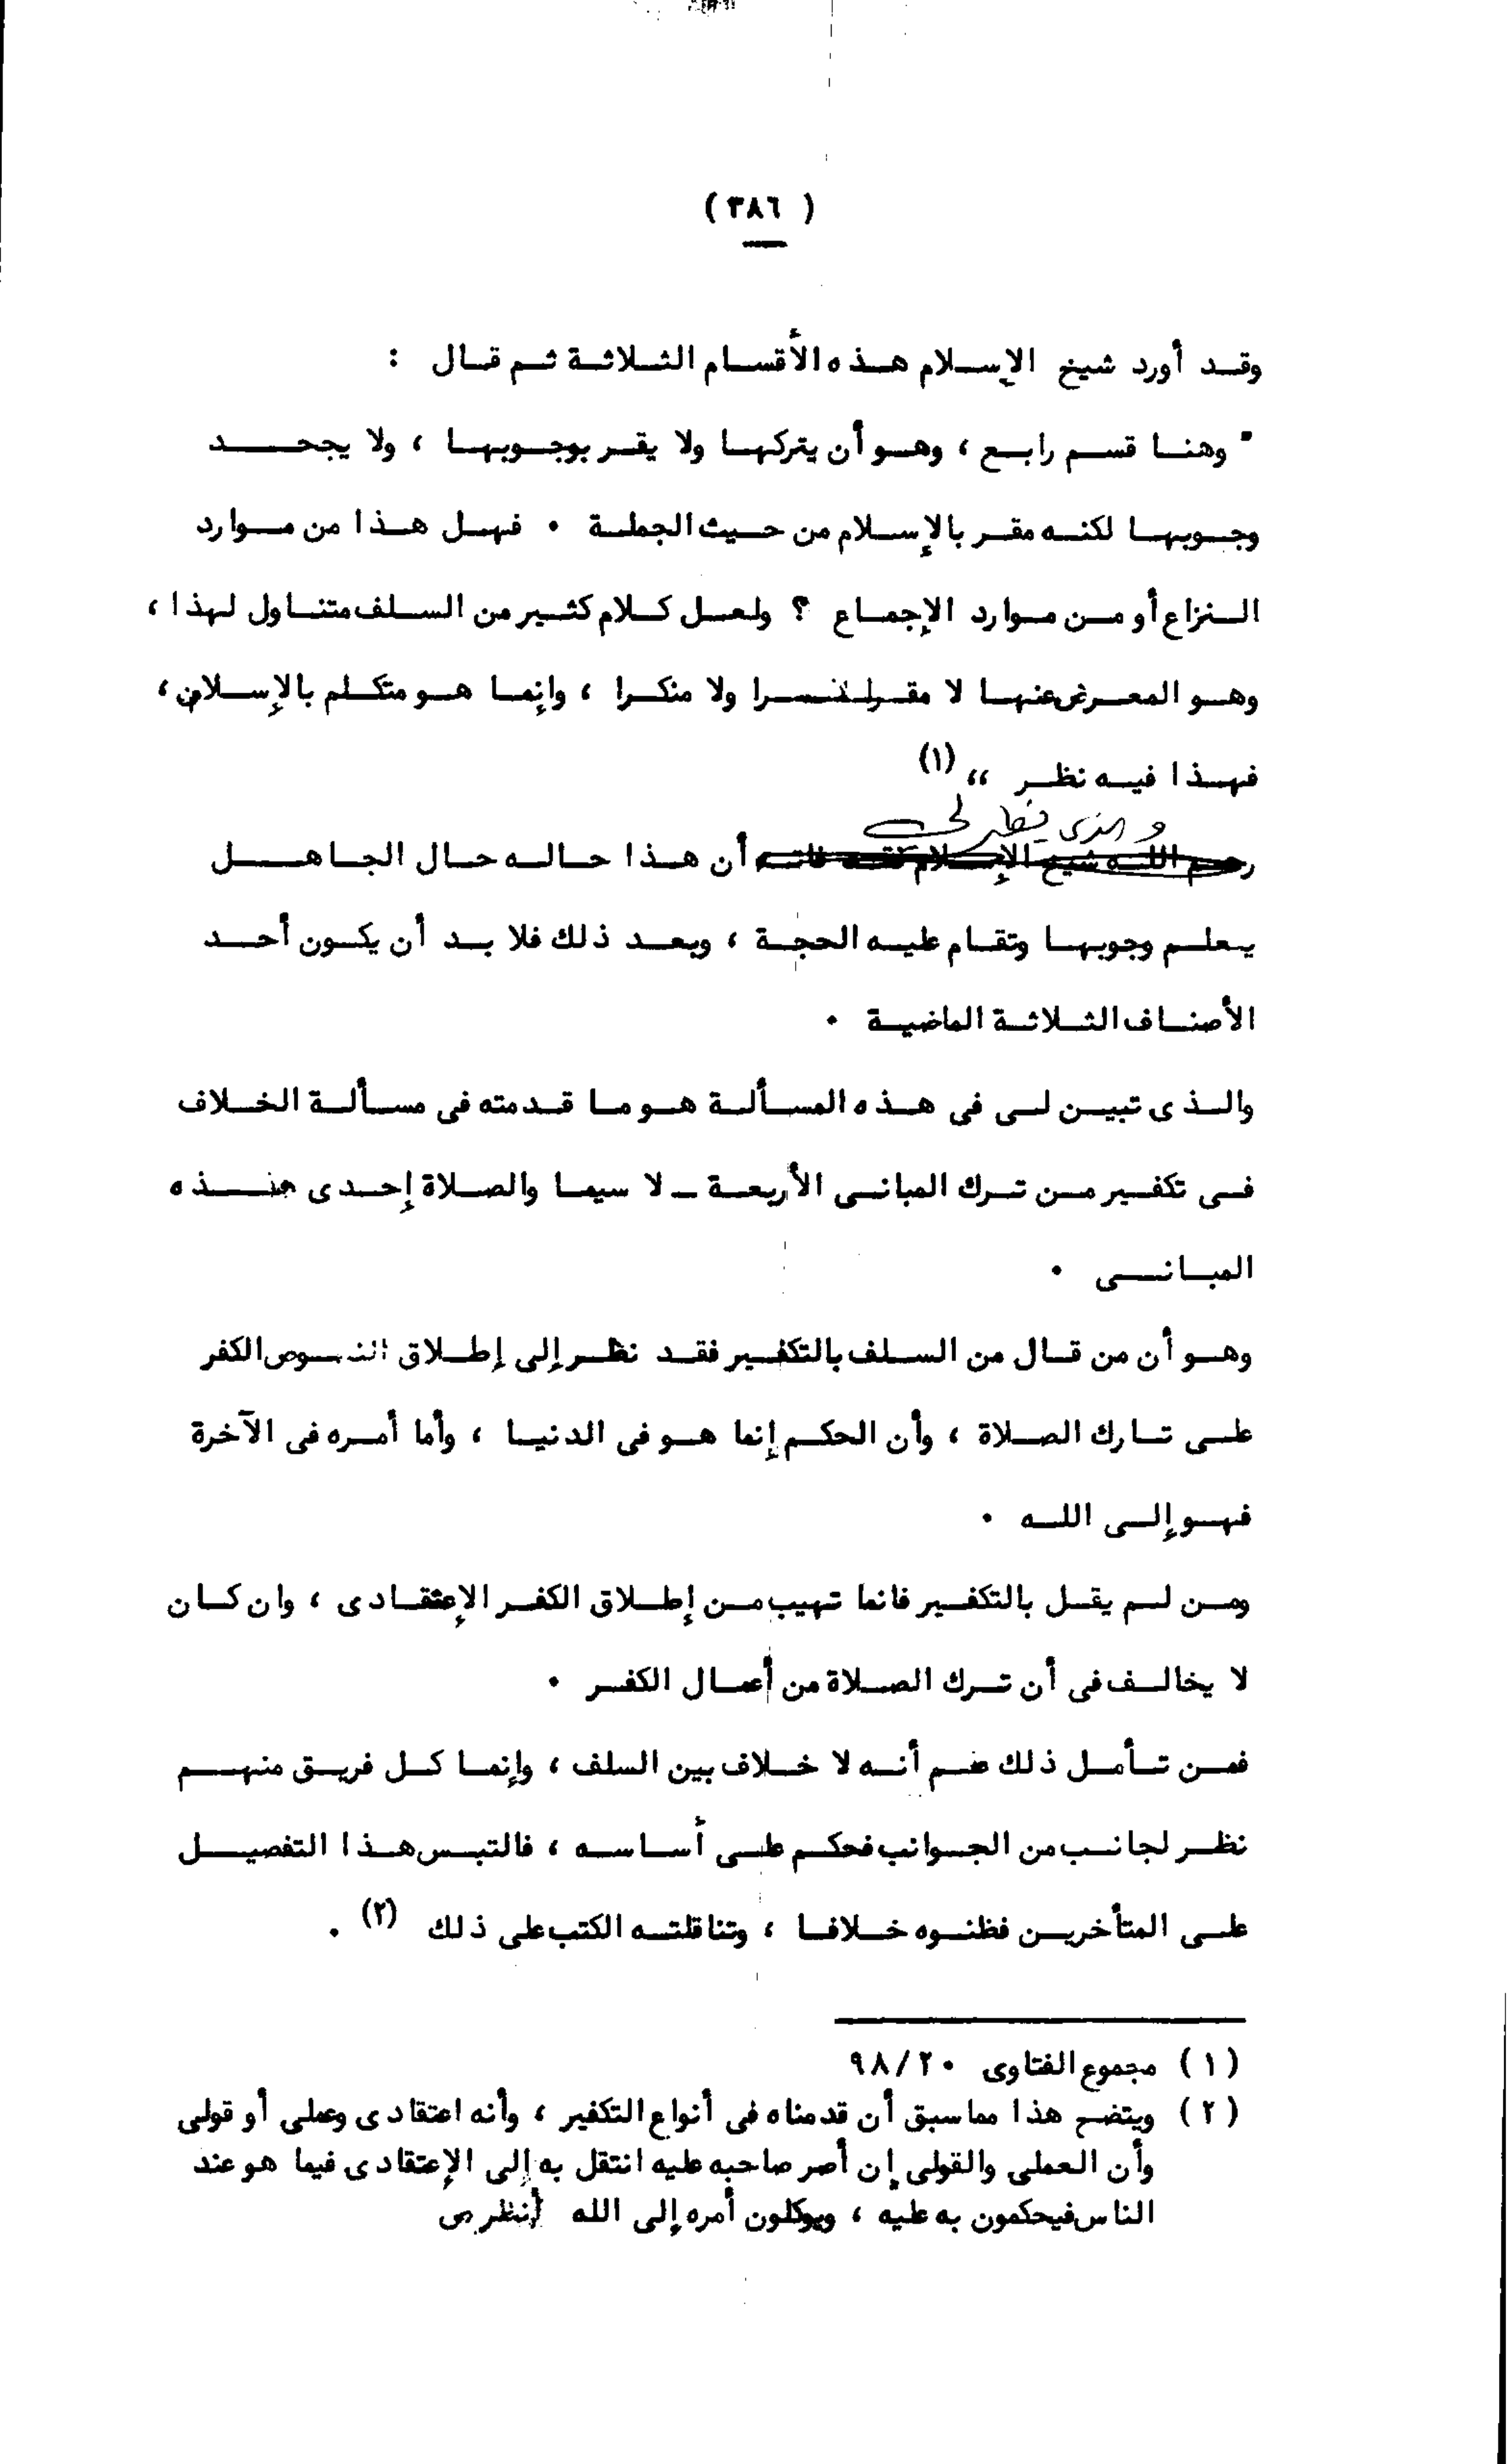 ( ٣٨٦ )
وقد أورد شيخ الإسلام هذه الأقسام الثلاثة ثم قال :
" وهنا قسم رابع ، وهو أن يتركها ولا يقر بوجوبها ، ولا يجحد
وجوبها لكنه مقر بالإسلام من حيث الجملة . فهل هذا من موارد
النزاع أو من موارد الإجماع ؟ ولعل كلام كثير من السلف متناول لهذا ،
وهو المعرض عنها لا مقرا ولا منكرا ، وإنما هو متكلم بالإسلام ،
فهذا فيه نظر " (١)
والذى يظهر لى
رحم الله شيخ الإسلام أن هذا حاله حال الجاهل
يعلم وجوبها وتقام عليه الحجة ، وبعد ذلك فلا بد أن يكون أحد
الأصناف الثلاثة الماضية .
والذى تبين لى فى هذه المسألة هو ما قدمته فى مسألة الخلاف
فى تكفير من ترك المبانى الأربعة ـ لا سيما والصلاة إحدى هذه
المبانى .
وهو أن من قال من السلف بالتكفير فقد نظر إلى إطلاق النصوص الكفر
على تارك الصلاة ، وأن الحكم إنما هو فى الدنيا ، وأما أمره فى الآخرة
فهو إلى الله .
ومن لم يقل بالتكفير فانما تهيب من إطلاق الكفر الإعتقادى ، وان كان
لا يخالف فى أن ترك الصلاة من أعمال الكفر .
فمن تأمل ذلك علم أنه لا خلاف بين السلف ، وإنما كل فريق منهم
نظر لجانب من الجوانب فحكم على أساسه ، فالتبس هذا التفصيل
على المتأخرين فظنوه خلافا ، وتناقلته الكتب على ذلك (٢) .
( ١ ) مجموع الفتاوى ٩٨/٢٠
( ٢ ) ويتضح هذا مما سبق أن قدمناه فى أنواع التكفير ، وأنه اعتقادى وعملى أو قولى
وأن العملى والقولى إن أصر صاحبه عليه انتقل به إلى الإعتقادى فيما هو عند
الناس فيحكمون به عليه ، ويوكلون أمره إلى الله (أنظر ص